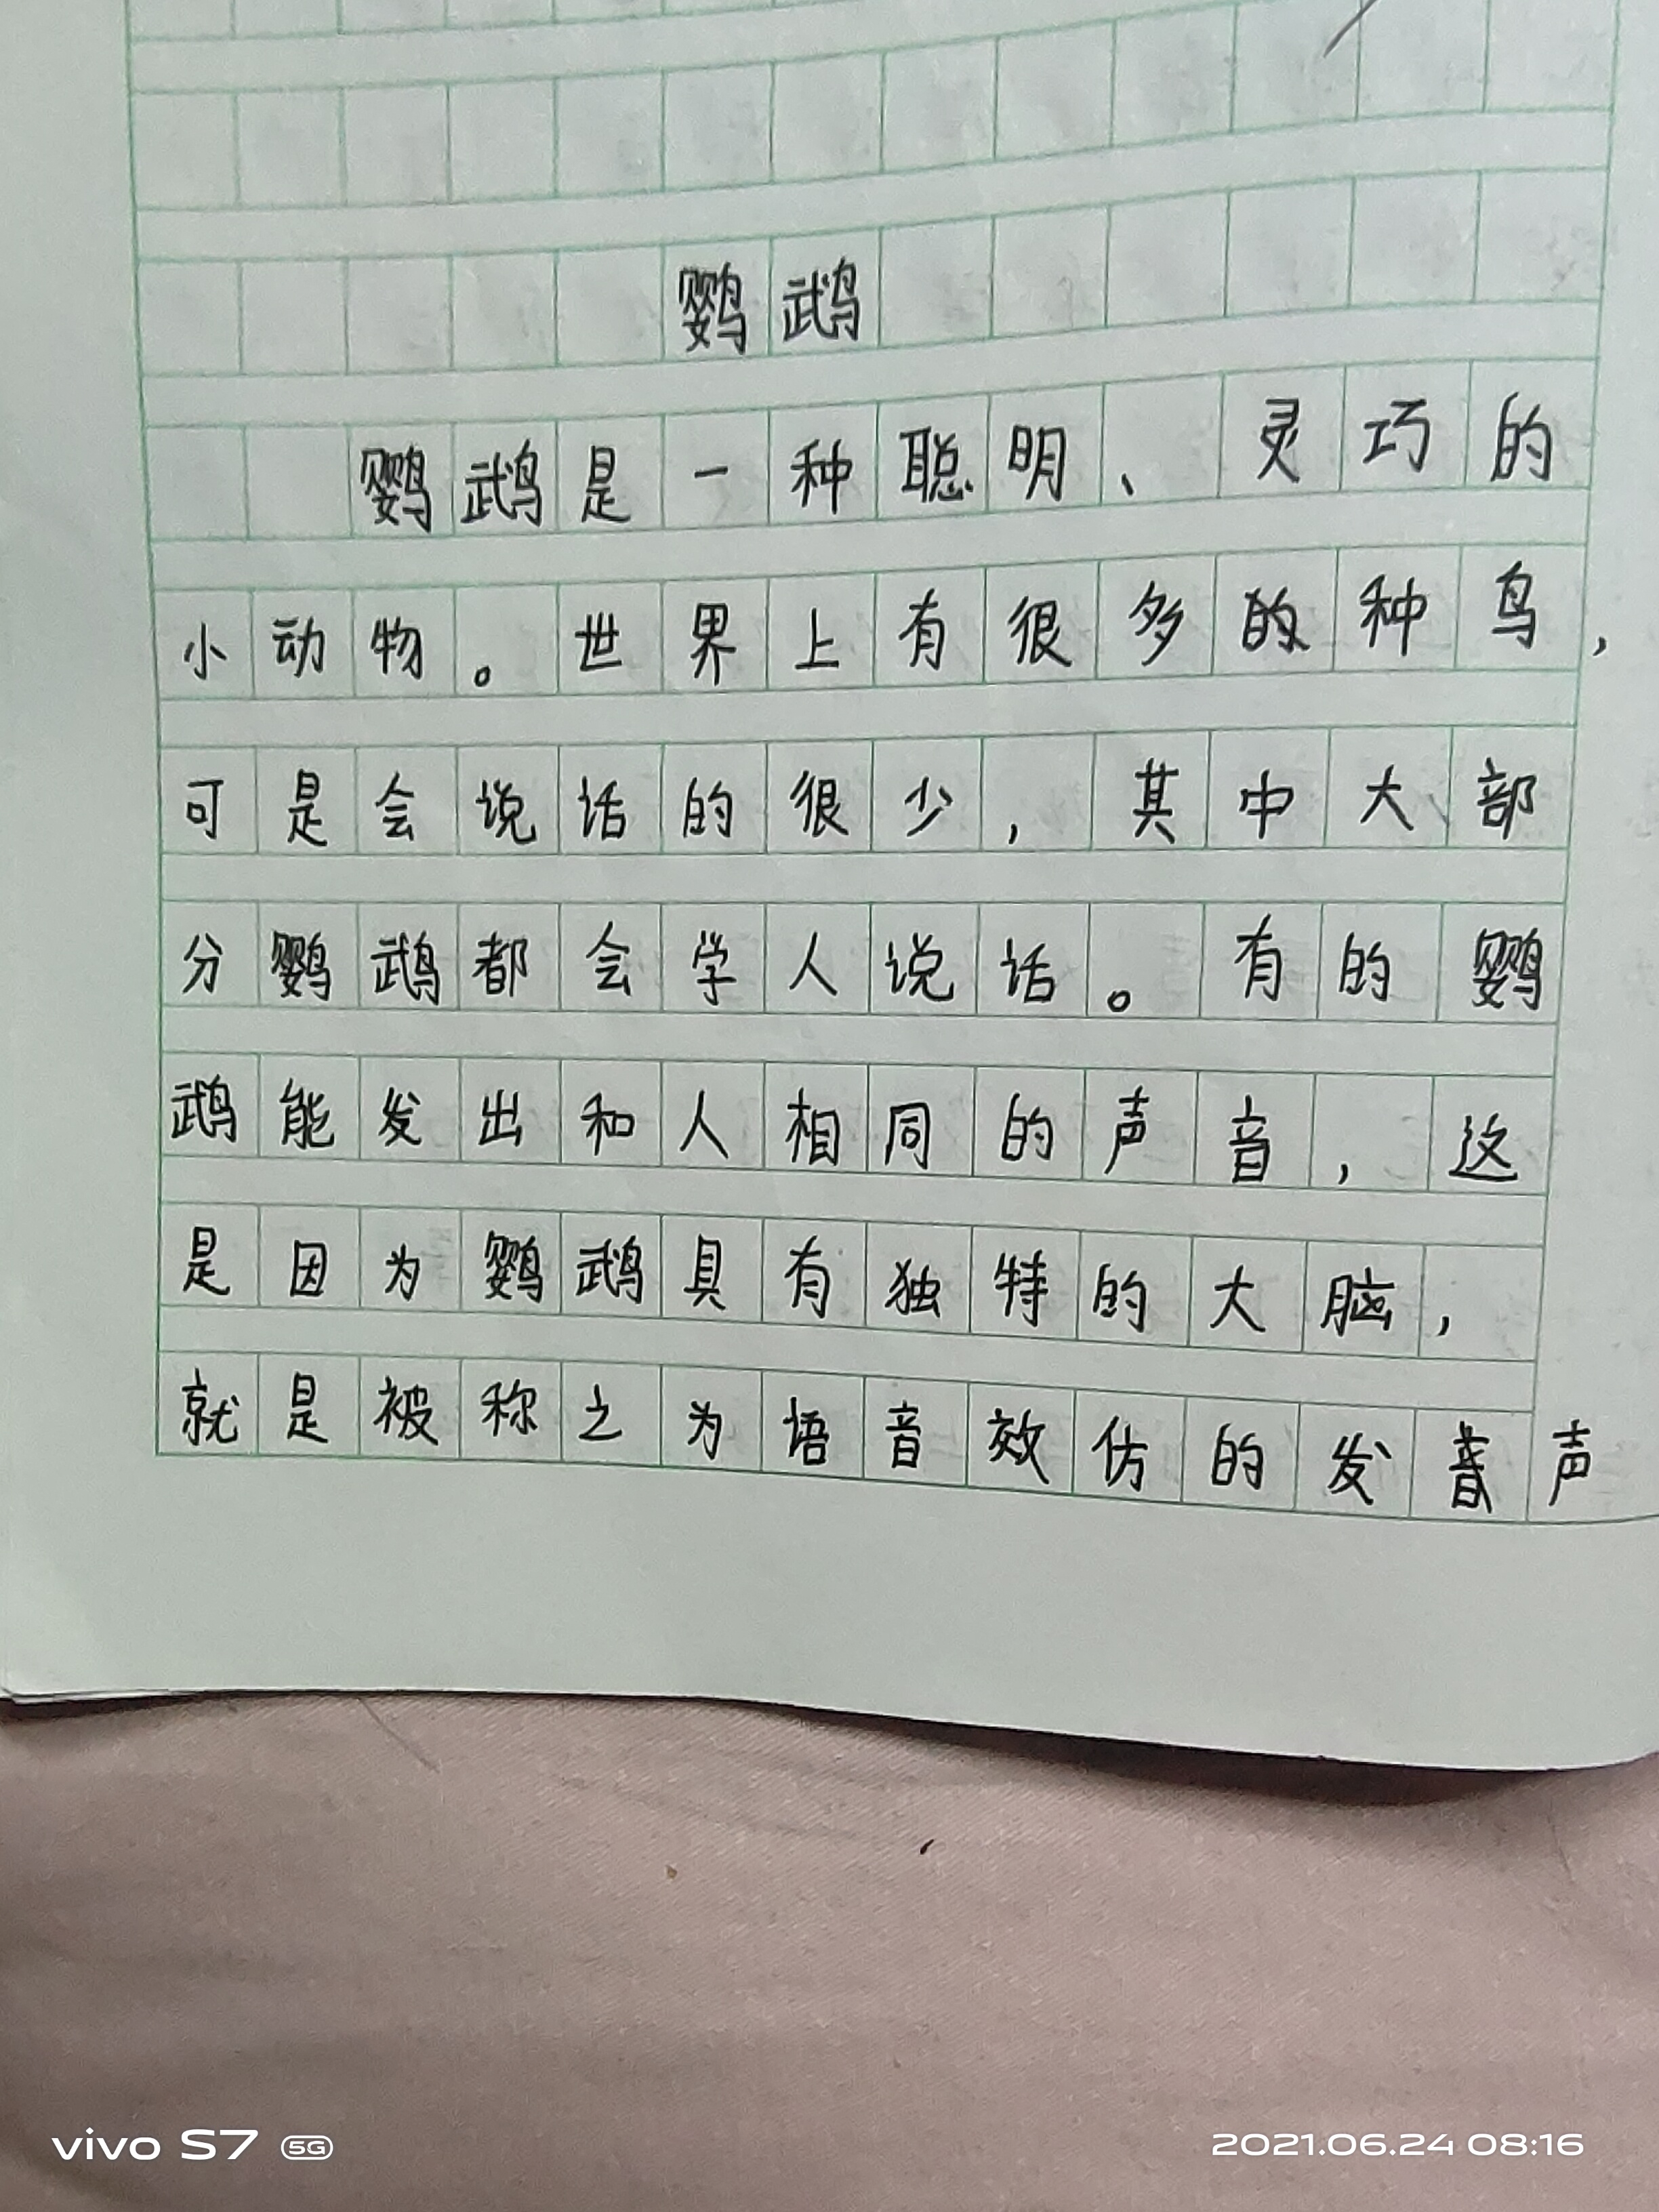 鹦鹉
鹦鹉是一种聪明、灵巧的
小动物。世界上有很多的种鸟，
可是会说话的很少，其中大部
分鹦鹉都会学人说话。有的鹦
鹉能发出和人相同的声音，这
是因为鹦鹉具有独特的大脑，
就是被称之为语音效仿的发声
vivo S7 5G
2021.06.24 08:16